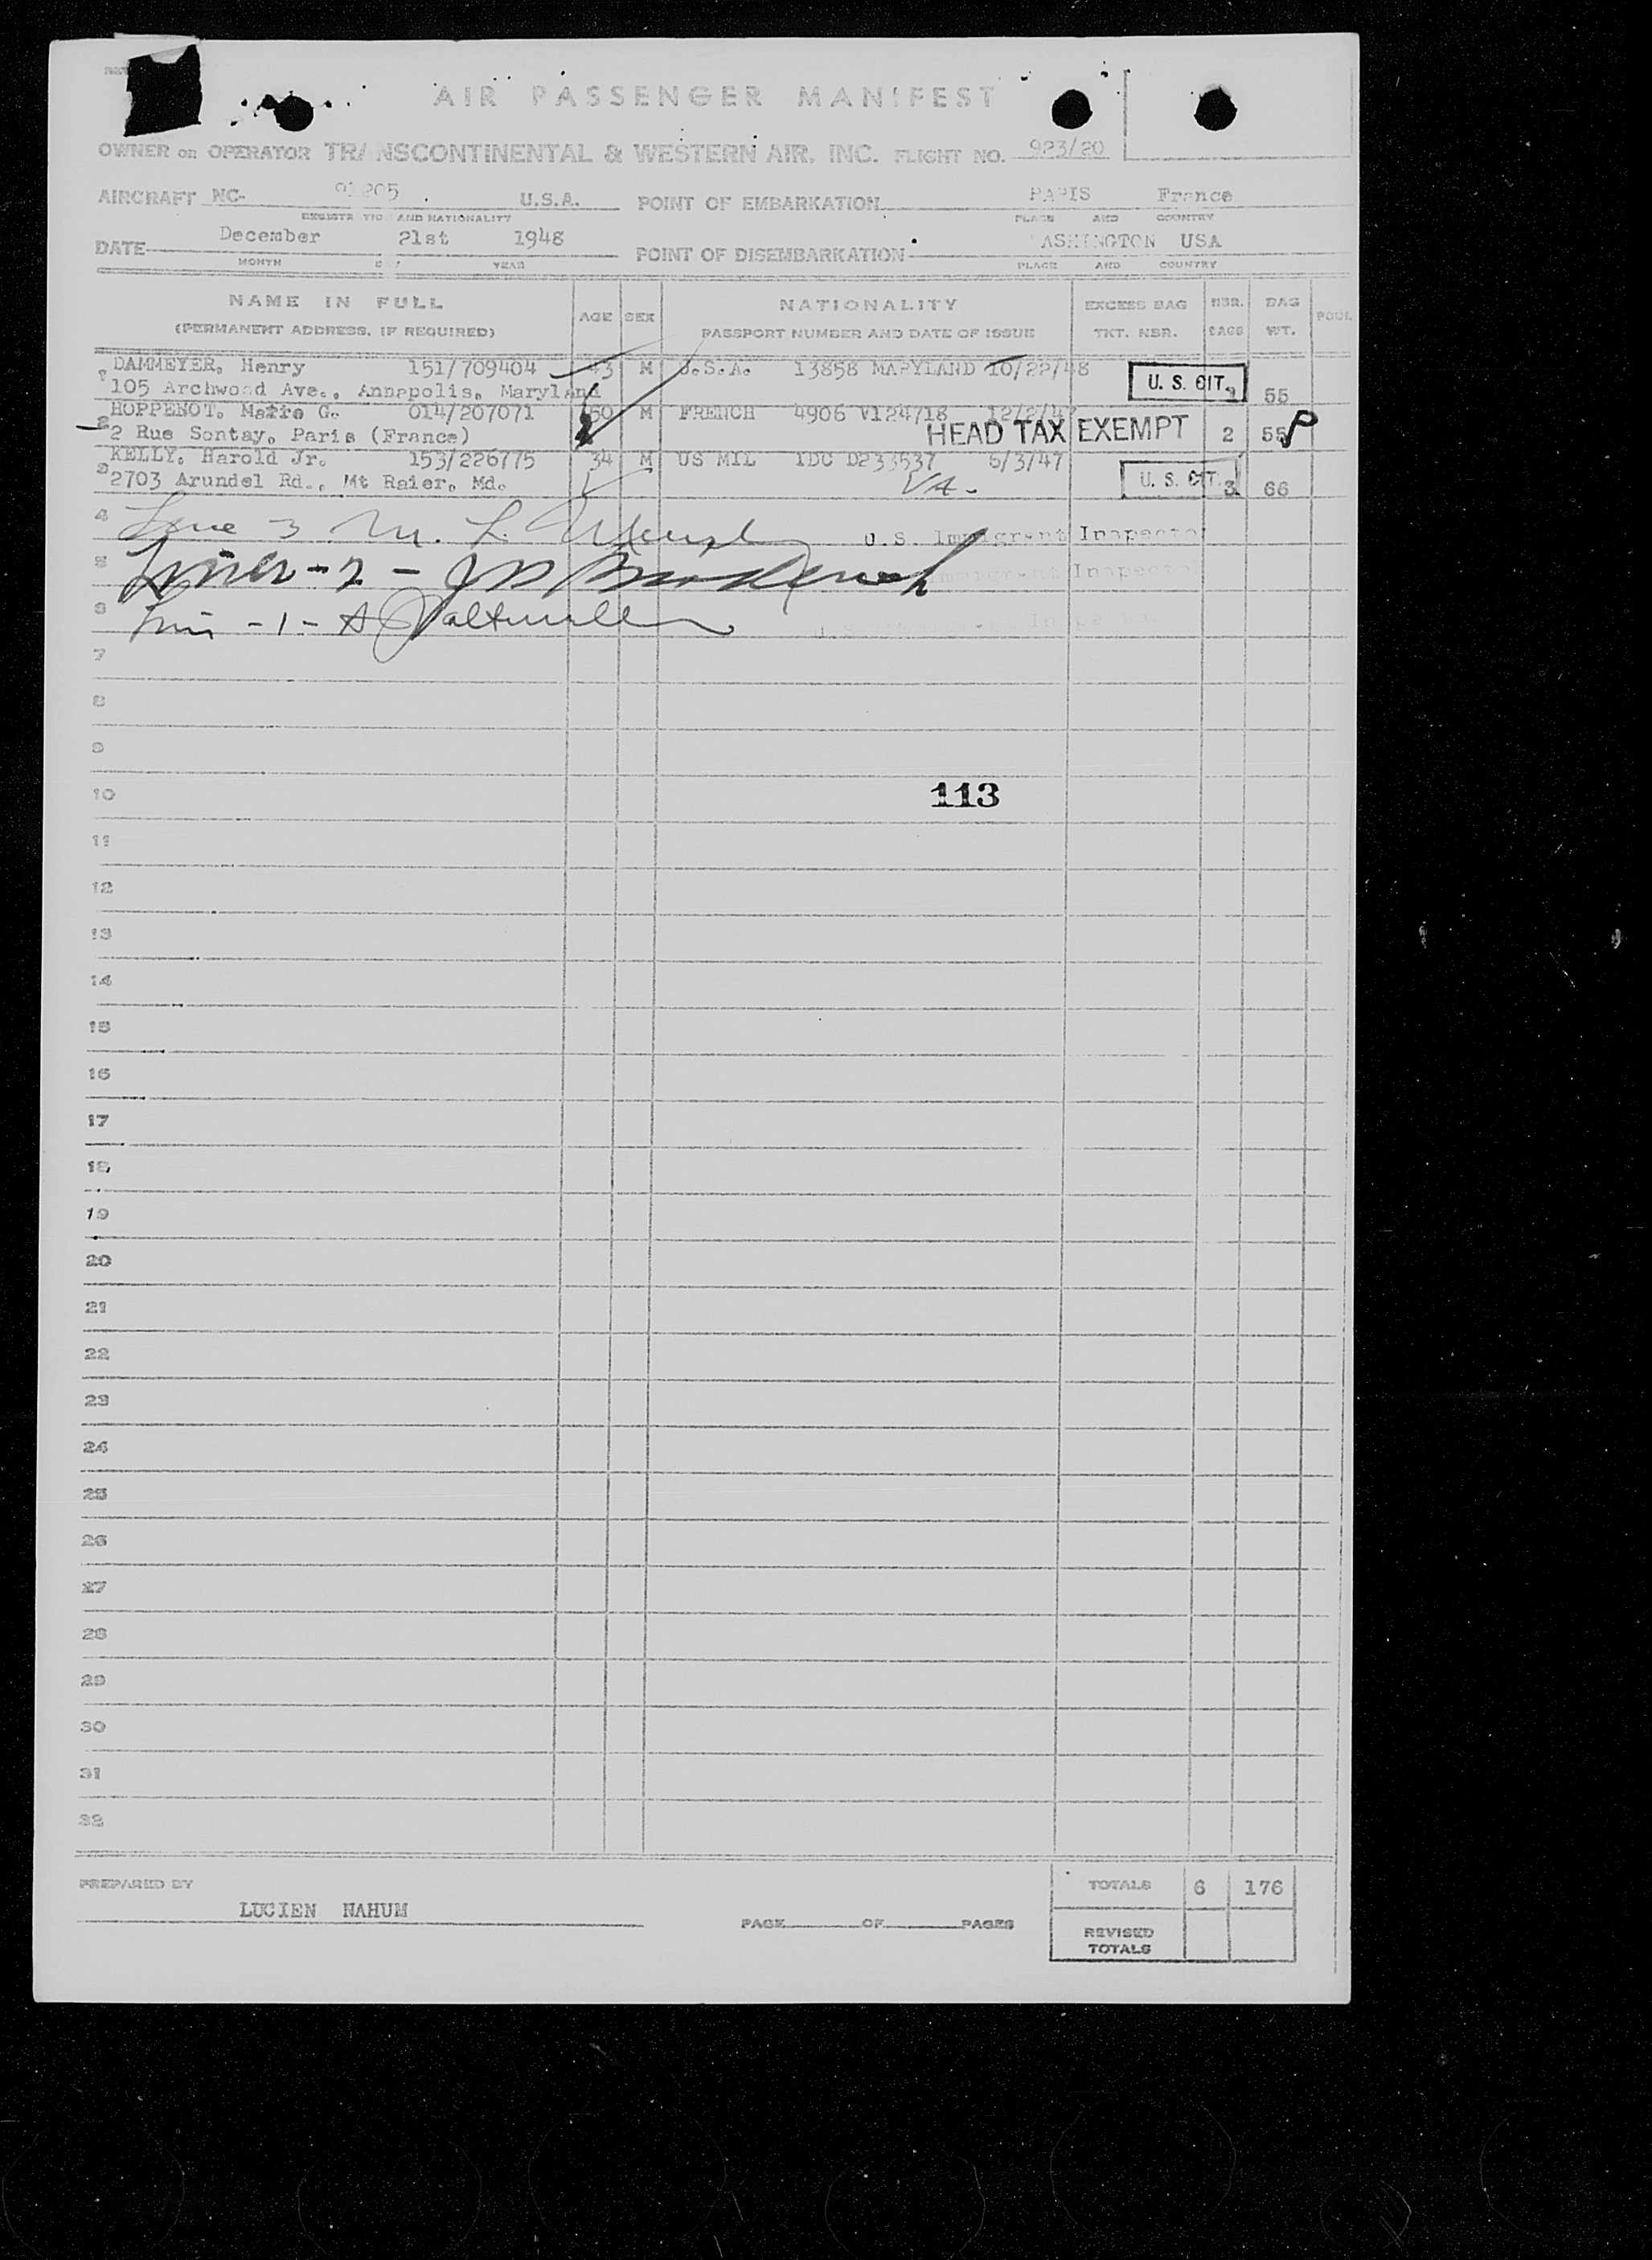 AIR PASSENGER MANIFEST
OWNER OR OPERATOR TRANSCONTINENTAL & WESTERN AIR, INC. FLIGHT NO. 923/20
AIRCRAFT NC- 91205 U.S.A. POINT OF EMBARKATION PARIS France
AND NATIONALITY PLACE AND COUNTRY
DATE December 21st 1948 POINT OF DISEMBARKATION WASHINGTON USA
MONTH YEAR PLACE AND COUNTRY
NAME IN FULL AGE SEX NATIONALITY EXCESS BAG NBR. BAG
(PERMANENT ADDRESS, IF REQUIRED) PASSPORT NUMBER AND DATE OF ISSUE TKT. NBR. BAGS WT.
DAMMEYER, Henry 151/709404 43 M U.S.A. 13858 MARYLAND 10/22/48
105 Archwood Ave., Annapolis, Maryland U. S. CIT. 1 55
HOPPENOT, G. 014/207071 60 M FRENCH 4906 V124718
2 2 Rue Sontay, Paris (France) HEAD TAX EXEMPT 2 55
KELLY, Harold Jr. 153/226775 34 M US MIL IDC 5/3/47
3 2703 Arundel Rd., Mt Raier, Md. U. S. CIT. 3 66
4 Line 3 M. L. U.S. Immigrant Inspector
5 Immigrant Inspector
6 - 1 -
7
8
9
10 113
11
12
13
14
15
16
17
18
19
20
21
22
23
24
25
26
27
28
29
30
31
32
PREPARED BY TOTALS 6 176
LUCIEN NAHUM
PAGE OF PAGES
REVISED
TOTALS